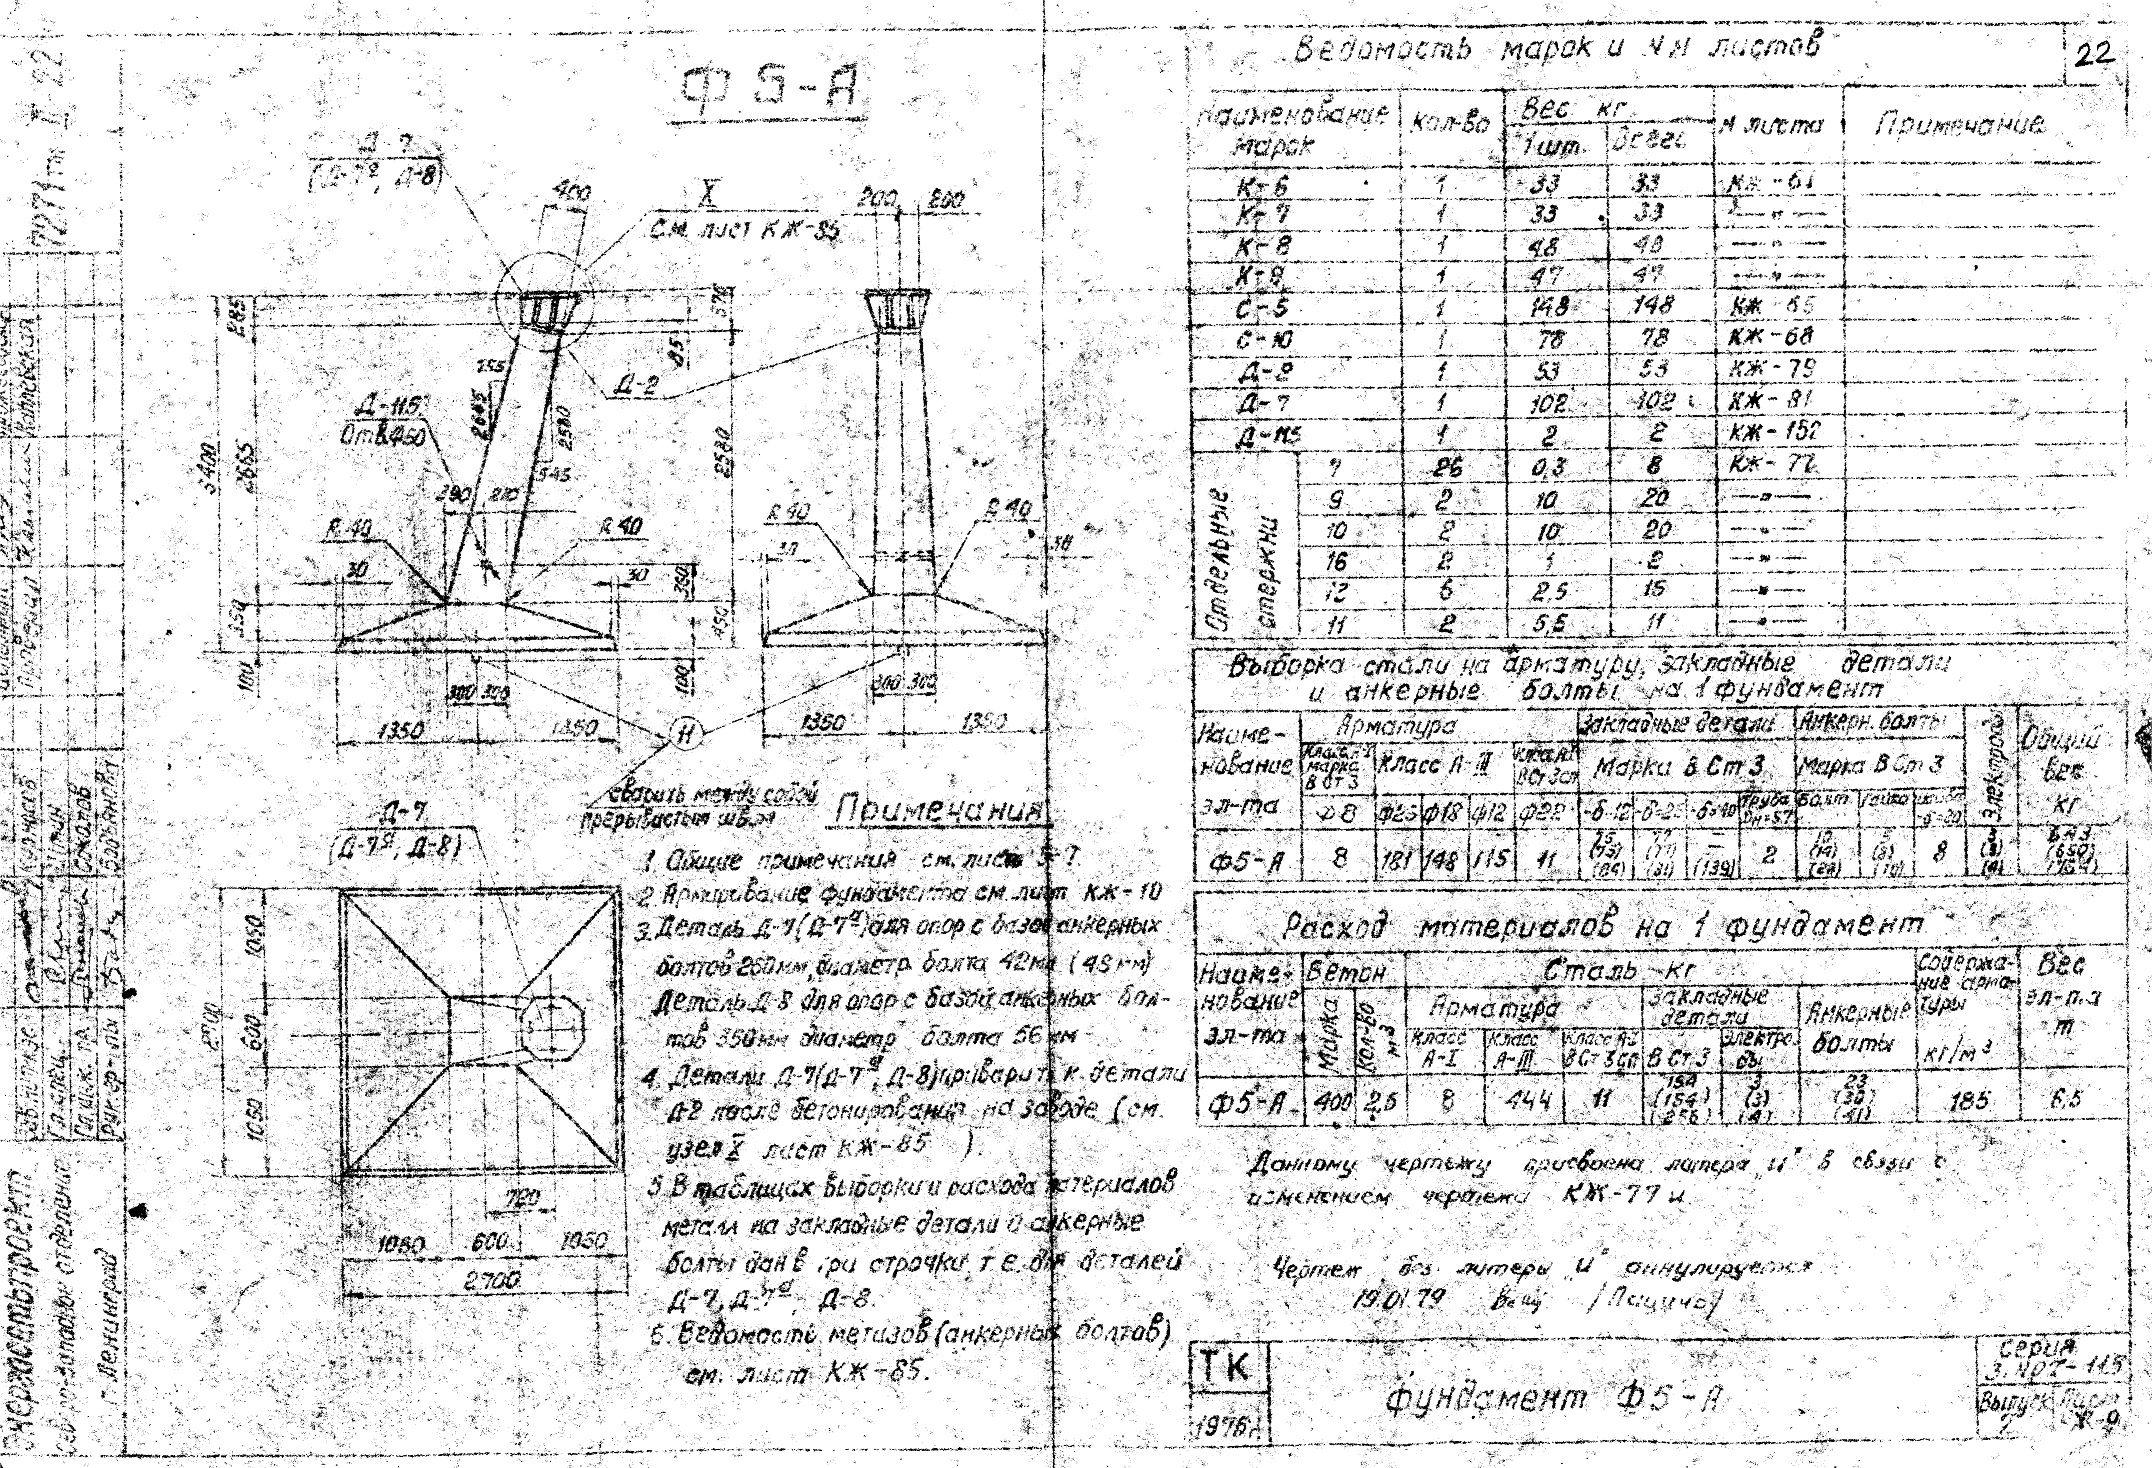 Ф 5-А
Д-7
(Д-7а, Д-8)
400
X
см. лист КЖ-85
200 200
285
370
85
Д-2
Д-115
Отв.Ф50
155
2580
545
3400
2665
2580
290 210
R 40
R 40
R 40
R 40
30
30
30
350
350
450
100
100
300 300
300 300
1350
1350
1350
1350
Н
сварить между собой
прерывистым швом
Д-7
(Д-7а, Д-8)
1050
600
1050
720
1050 600 1050
2700
Примечания
1. Общие примечания см. лист 5-7.
2. Армирование фундамента см. лист КЖ-10
3. Деталь Д-7 (Д-7а) для опор с базой анкерных
болтов 250мм, диаметр болта 42мм (48мм)
Деталь Д-8 для опор с базой анкерных бол-
тов 350мм диаметр болта 56мм
4. Детали Д-7 (Д-7а, Д-8) приварить к детали
Д-2 после бетонирования на заводе (см.
узел X лист КЖ-85 ).
5. В таблицах выборки и расхода материалов
металл на закладные детали и анкерные
болты дан в три строчки, т.е. для деталей
Д-7, Д-7а, Д-8.
6. Ведомость метизов (анкерных болтов)
см. лист КЖ-85.
Ведомость марок и NN листов
22
Наименование марок Кол-во Вес кг. N листа Примечание
1 шт. Всего
К-6 1 33 33 КЖ-61
К-7 1 33 33 —"—
К-8 1 48 48 —"—
К-9 1 47 47 —"—
С-5 1 148 148 КЖ-65
С-10 1 78 78 КЖ-68
Д-2 1 53 53 КЖ-79
Д-7 1 102 102 КЖ-81
Д-115 1 2 2 КЖ-152
Отдельные стержни
7 26 0,3 8 КЖ-77
9 2 10 20 —"—
10 2 10 20 —"—
16 2 1 2 —"—
12 6 2,5 15 —"—
11 2 5,5 11 —"—
Выборка стали на арматуру, закладные детали
и анкерные болты на 1 фундамент
Наиме-нование эл-та Арматура Закладные детали Анкерн. болты Электроды Общий вес кг
Класс А-I марка В Ст 3 Класс А-III Класс А-I ВСт3сп Марки В Ст 3 Марка В Ст 3
Ф8 Ф18 Ф12 Ф22 Труба Dн=57 Болт Гайка
Ф5-А 8 181 148 115 11 2 8
Расход материалов на 1 фундамент
Наиме-нование эл-та Бетон Сталь кг Содержа-ние арма-туры кг/м³ Вес эл-та т
Марка Кол-во м³ Арматура Закладные детали Анкерные болты
Класс А-I Класс А-III Класс А-I ВСт3сп В Ст 3 Электро-ды
Ф5-А 400 2,6 8 444 11 154 3 23 185 6,5
(154) (3) (30)
(256) (4) (41)
Данному чертежу присвоена литера "и" в связи с
изменением чертежа КЖ-77и
Чертеж без литеры "и" аннулируется
19.01.79
ТК
1976г.
Фундамент Ф5-А
Серия
3.407-115
Выпуск Лист
2 КЖ-9
7271тм II 22
Энергосетьпроект
Северо-западное отделение
г. Ленинград